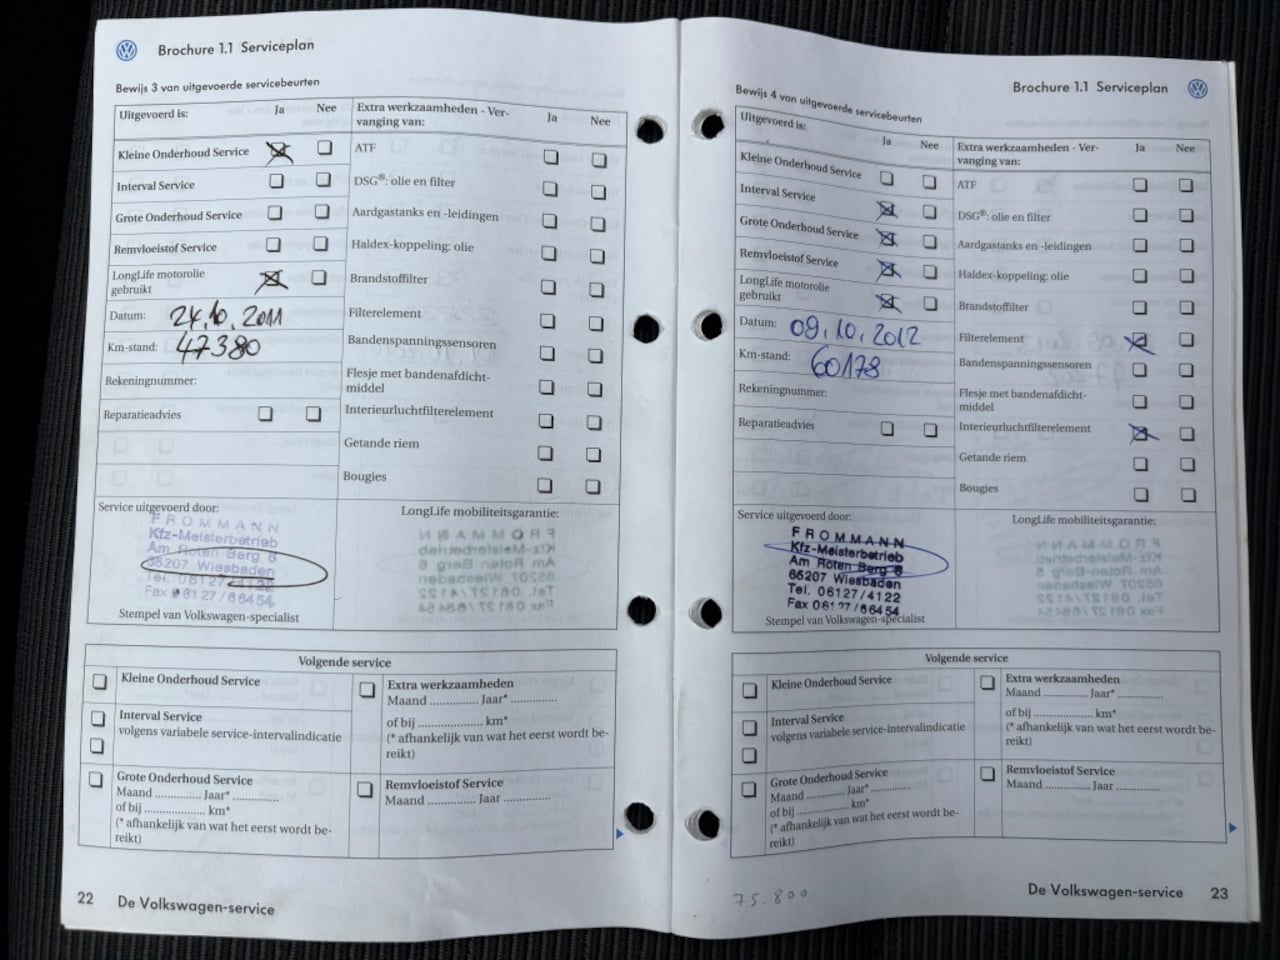 Brochure 1.1 Serviceplan
Bewijs 3 van uitgevoerde servicebeurten
Uitgevoerd is: Ja Nee
Kleine Onderhoud Service
Interval Service
Grote Onderhoud Service
Remvloeistof Service
LongLife motorolie
gebruikt
Datum: 24.10.2011
Km-stand: 47380
Rekeningnummer:
Reparatieadvies
Extra werkzaamheden - Ver-
vanging van: Ja Nee
ATF
DSG®: olie en filter
Aardgastanks en -leidingen
Haldex-koppeling: olie
Brandstoffilter
Filterelement
Bandenspanningssensoren
Flesje met bandenafdicht-
middel
Interieurluchtfilterelement
Getande riem
Bougies
Service uitgevoerd door:
FROMMANN
Kfz-Meisterbetrieb
Am Roten Berg 8
65207 Wiesbaden
Tel. 06127/4122
Fax 06127/66454
Stempel van Volkswagen-specialist
LongLife mobiliteitsgarantie:
Volgende service
Kleine Onderhoud Service
Interval Service
volgens variabele service-intervalindicatie
Grote Onderhoud Service
Maand ............. Jaar* .............
of bij ........................ km*
(* afhankelijk van wat het eerst wordt be-
reikt)
Extra werkzaamheden
Maand ............. Jaar* .............
of bij ................... km*
(* afhankelijk van wat het eerst wordt be-
reikt)
Remvloeistof Service
Maand ............. Jaar .............
22 De Volkswagen-service
Brochure 1.1 Serviceplan
Bewijs 4 van uitgevoerde servicebeurten
Uitgevoerd is: Ja Nee
Kleine Onderhoud Service
Interval Service
Grote Onderhoud Service
Remvloeistof Service
LongLife motorolie
gebruikt
Datum: 09.10.2012
Km-stand: 60178
Rekeningnummer:
Reparatieadvies
Extra werkzaamheden - Ver-
vanging van: Ja Nee
ATF
DSG®: olie en filter
Aardgastanks en -leidingen
Haldex-koppeling: olie
Brandstoffilter
Filterelement
Bandenspanningssensoren
Flesje met bandenafdicht-
middel
Interieurluchtfilterelement
Getande riem
Bougies
Service uitgevoerd door:
FROMMANN
Kfz-Meisterbetrieb
Am Roten Berg 8
65207 Wiesbaden
Tel. 06127/4122
Fax 06127/66454
Stempel van Volkswagen-specialist
LongLife mobiliteitsgarantie:
Volgende service
Kleine Onderhoud Service
Interval Service
volgens variabele service-intervalindicatie
Grote Onderhoud Service
Maand ............. Jaar* .............
of bij ........................ km*
(* afhankelijk van wat het eerst wordt be-
reikt)
Extra werkzaamheden
Maand ............. Jaar* .............
of bij ................... km*
(* afhankelijk van wat het eerst wordt be-
reikt)
Remvloeistof Service
Maand ............. Jaar .............
75.800
De Volkswagen-service 23